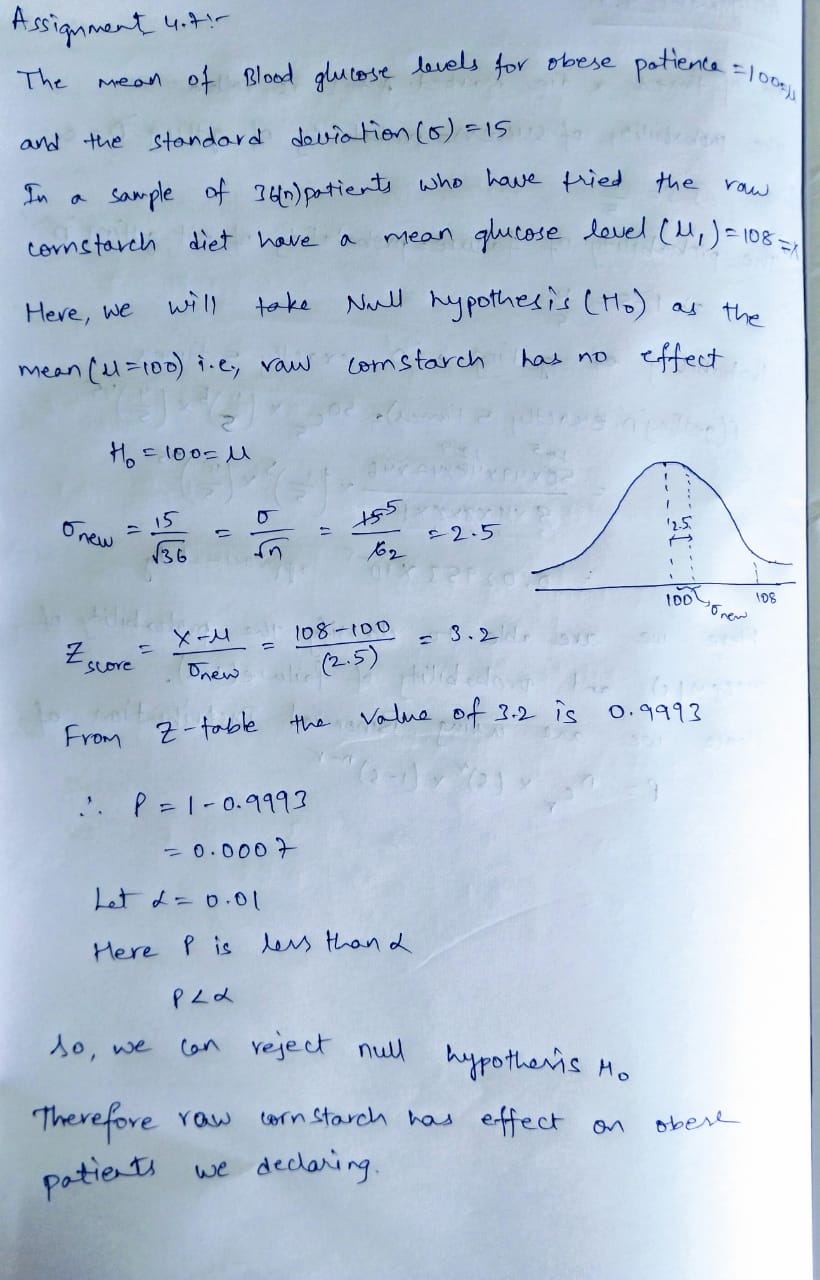 Assignment 4.7:-
The mean of Blood glucose levels for obese patience = 100 = μ
and the standard deviation (σ) = 15
In a sample of 36(n) patients who have tried the raw
cornstarch diet have a mean glucose level (μ₁) = 108 = x
Here, we will take Null hypothesis (H₀) as the
mean (μ=100) i.e, raw cornstarch has no effect
H₀ = 100 = μ
σnew = 15/√36 = σ/√n = 15 5/6 2 = 2.5
2.5
100 σnew 108
Z score = x-μ/σnew = 108-100/(2.5) = 3.2
From Z-table the value of 3.2 is 0.9993
∴ P = 1-0.9993
= 0.0007
Let α = 0.01
Here P is less than α
P<α
So, we can reject null hypothesis H₀
Therefore raw cornstarch has effect on obese
patients we declaring.